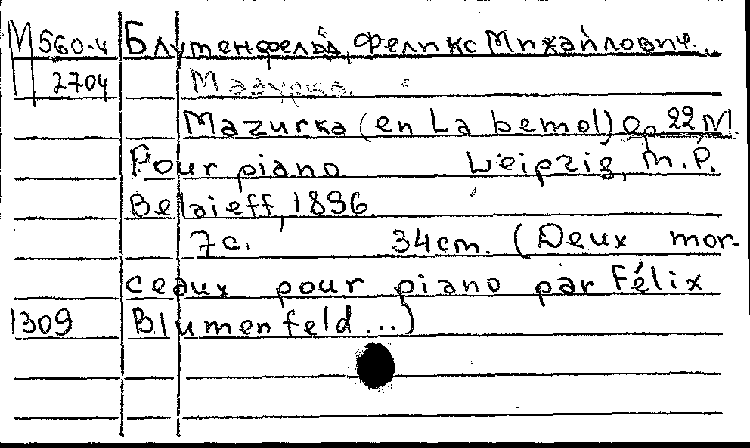 М 560-4 Блуменфельд, Феликс Михайлович.
2704 Мазурка.
Mazurka (en La bemol) Op 22 M
Pour piano Leipzig, M.P.
Belaieff, 1896
7с. 34cm. (Deux mor-
ceaux pour piano par Félix
1309 Blumenfeld...)